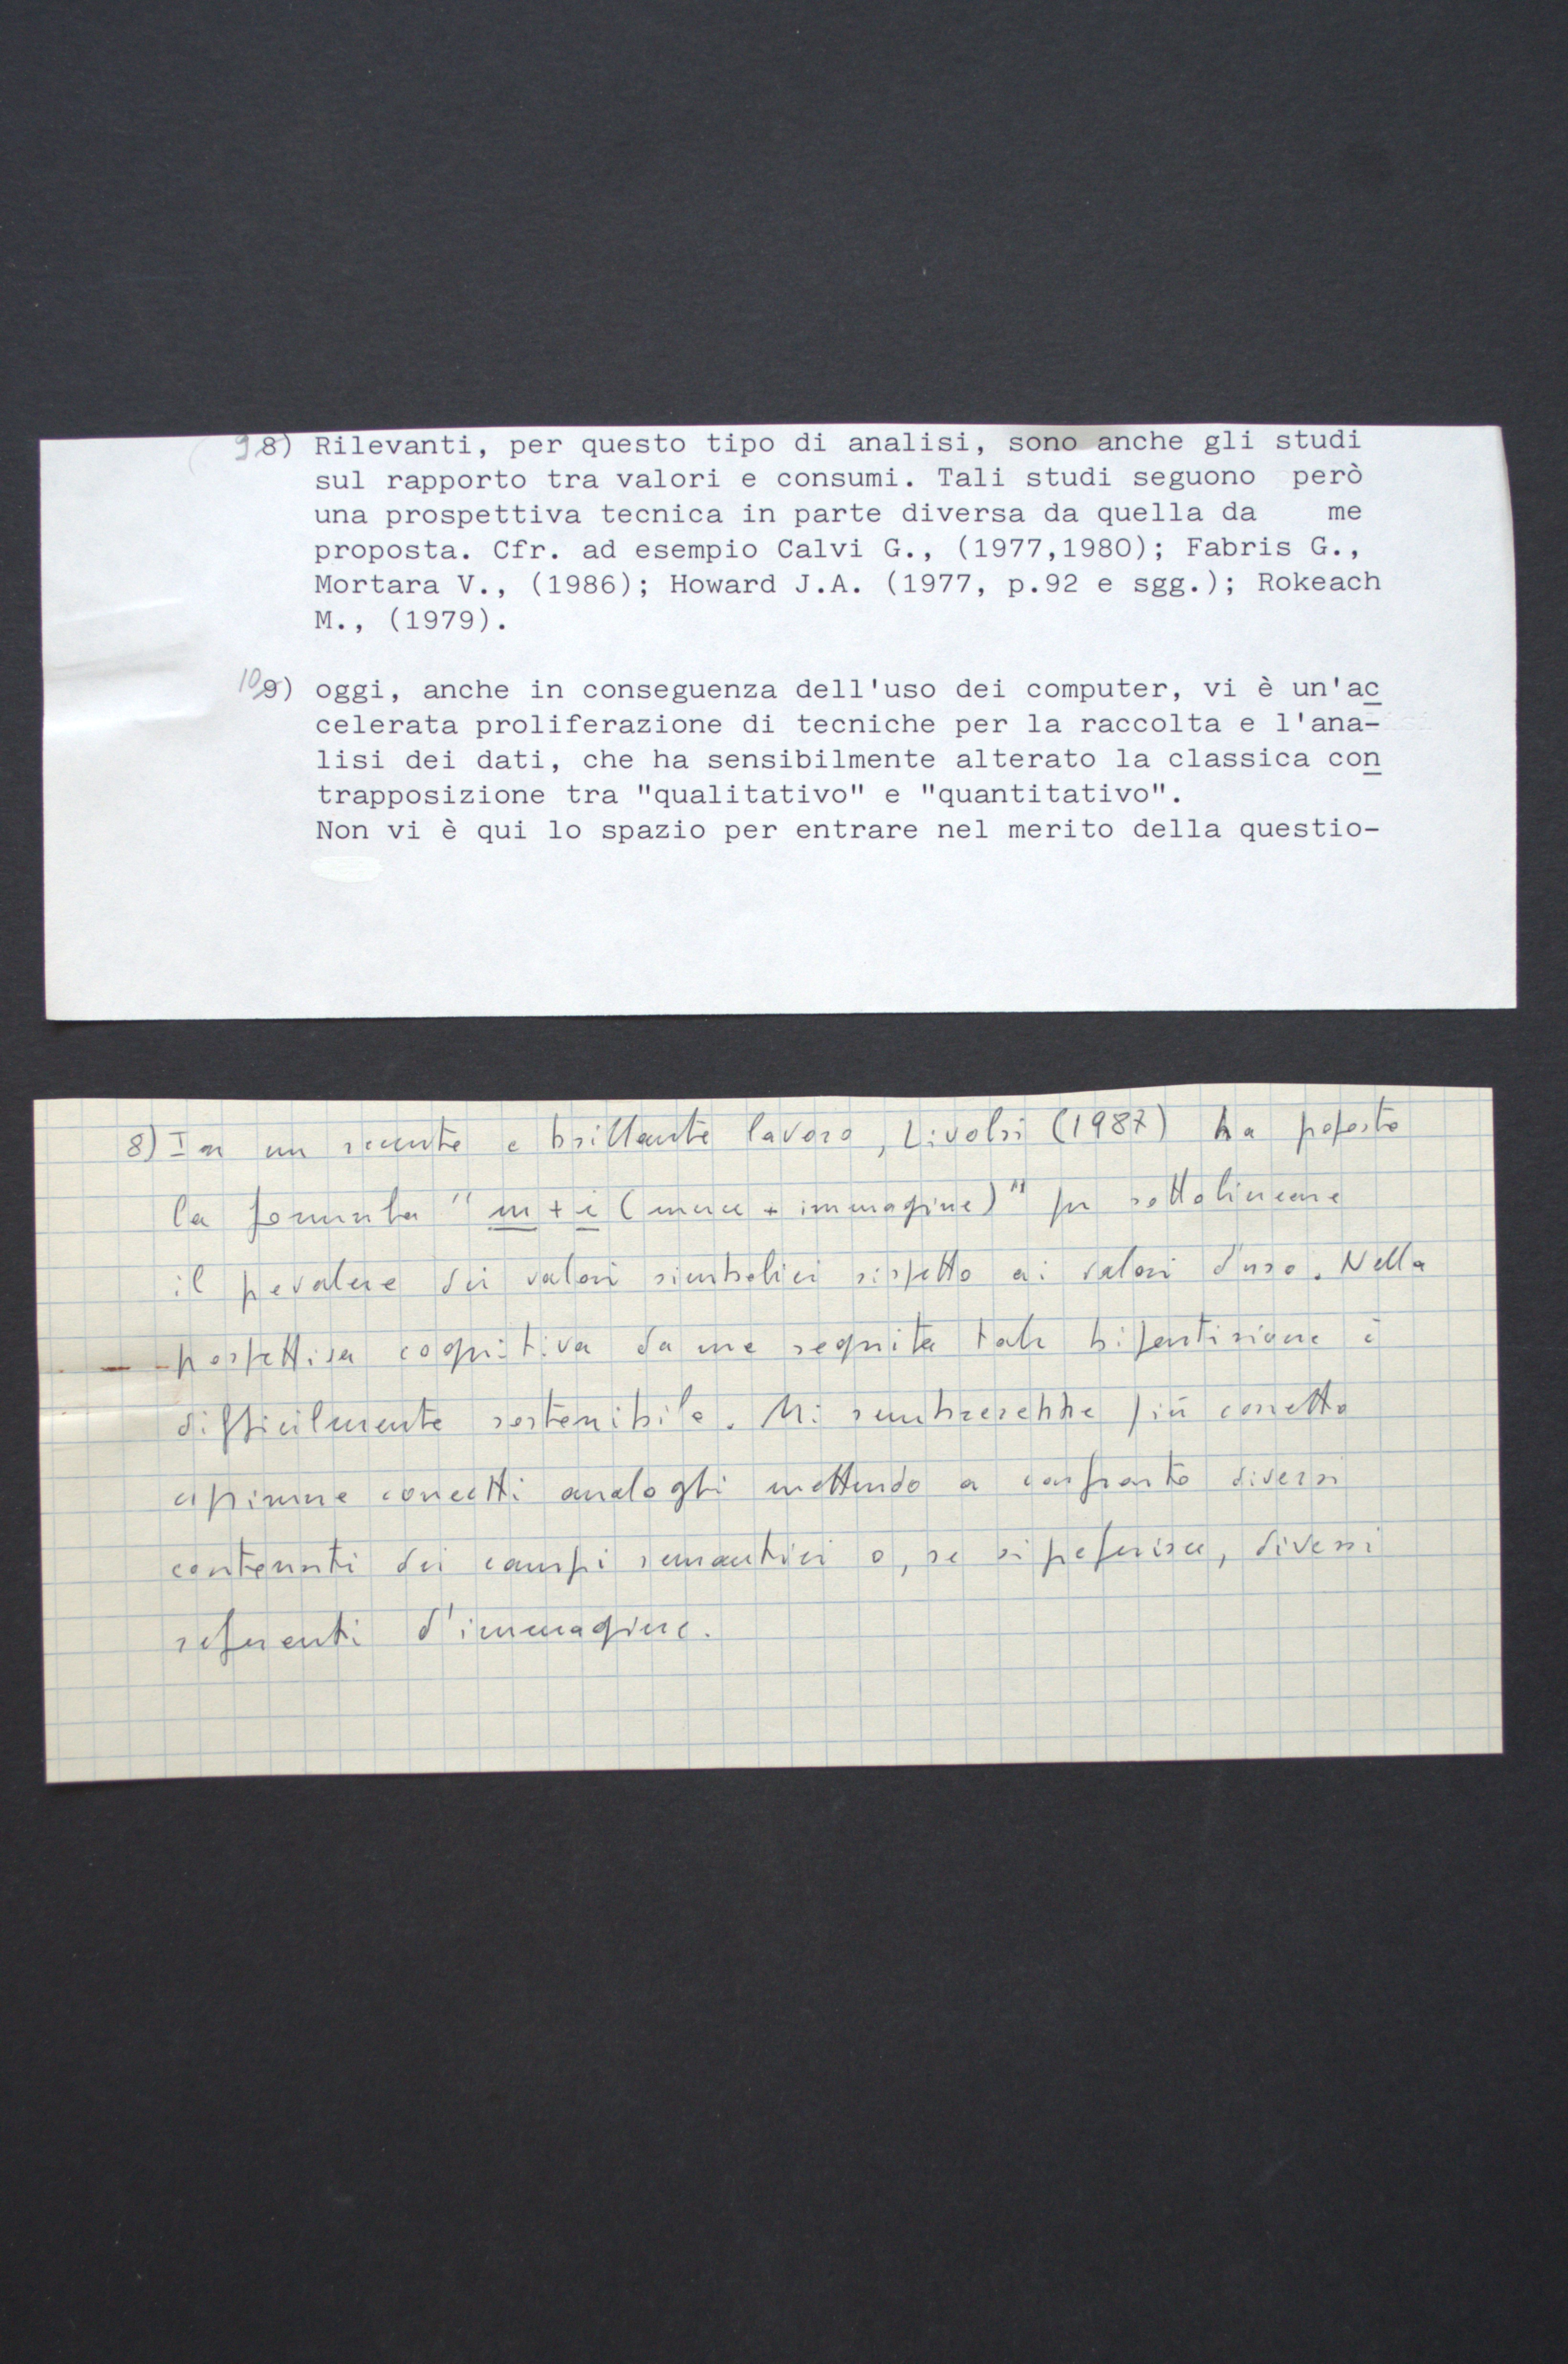 9 8) Rilevanti, per questo tipo di analisi, sono anche gli studi
sul rapporto tra valori e consumi. Tali studi seguono però
una prospettiva tecnica in parte diversa da quella da me
proposta. Cfr. ad esempio Calvi G., (1977,1980); Fabris G.,
Mortara V., (1986); Howard J.A. (1977, p.92 e sgg.); Rokeach
M., (1979).
10 9) oggi, anche in conseguenza dell'uso dei computer, vi è un'ac
celerata proliferazione di tecniche per la raccolta e l'ana-
lisi dei dati, che ha sensibilmente alterato la classica con
trapposizione tra "qualitativo" e "quantitativo".
Non vi è qui lo spazio per entrare nel merito della questio-
8) In un recente e brillante lavoro, Livolsi (1987) ha proposto
la formula "m + i (merce + immagine)" per sottolineare
il prevalere dei valori simbolici rispetto ai valori d'uso. Nella
prospettiva cognitiva da me seguita tale bipartizione è
difficilmente sostenibile. Mi sembrerebbe più corretto
esprimere concetti analoghi mettendo a confronto diversi
contenuti dei campi semantici o, se si preferisce, diversi
referenti d'immagine.